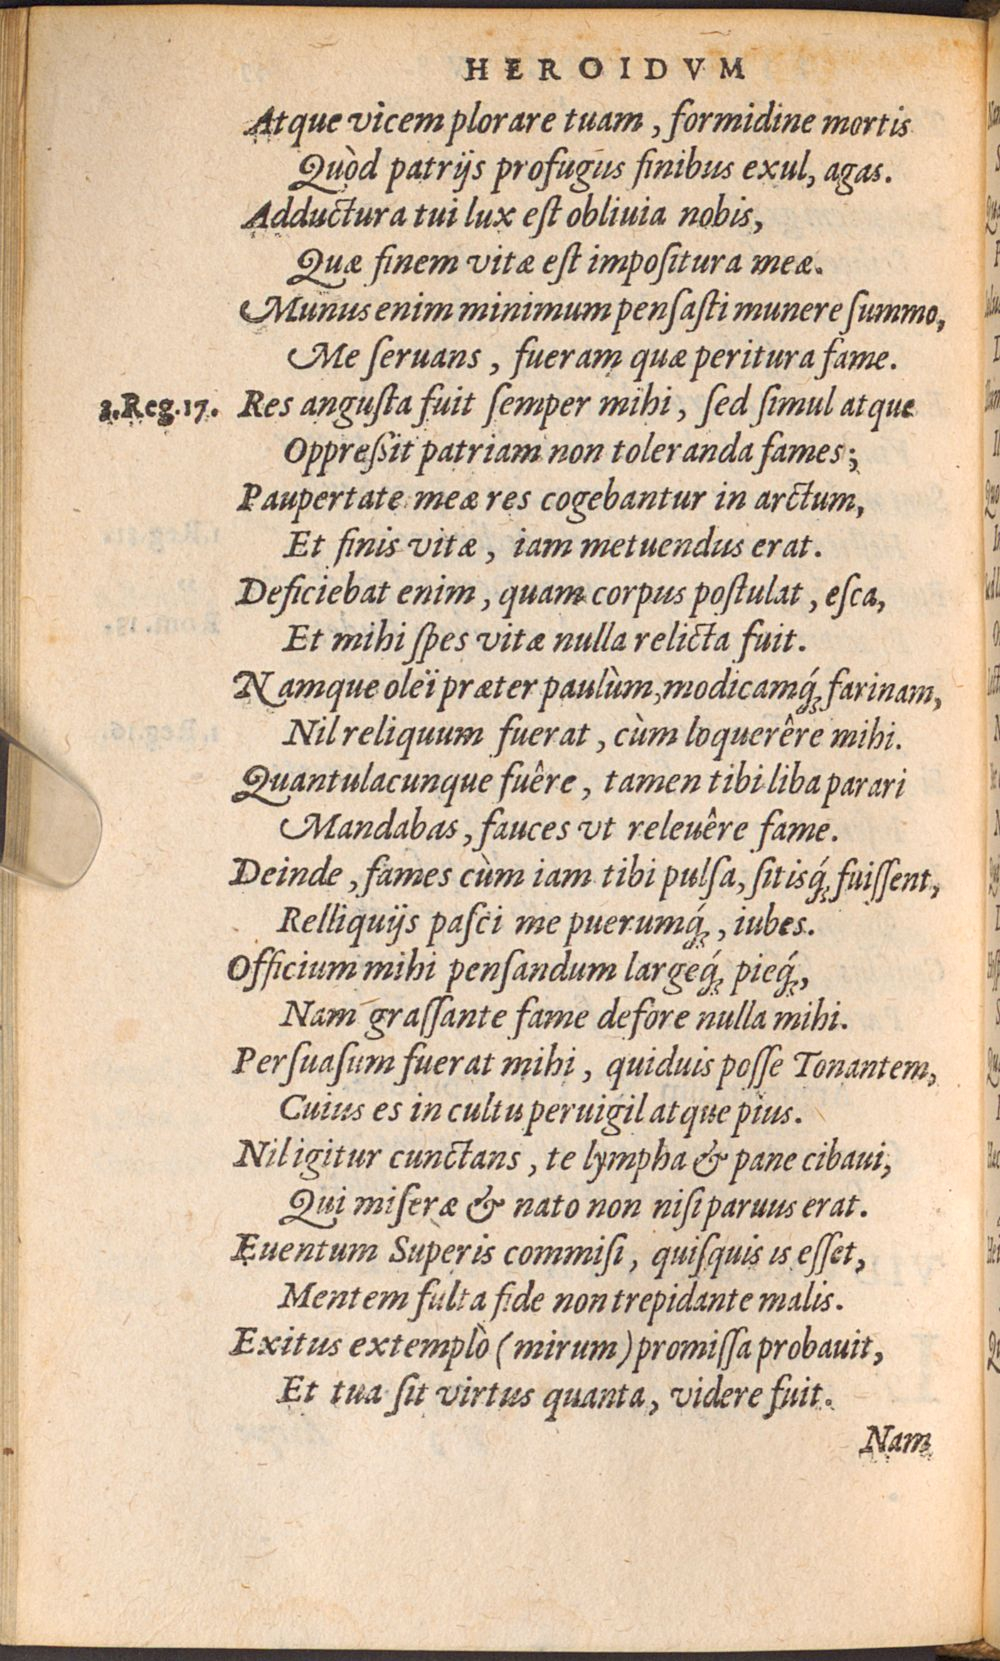 HEROIDVM
Atque vicem plorare tuam, formidine mortis
Quòd patrijs profugus finibus exul, agas.
Adductura tui lux eſt obliuia nobis,
Quæ finem vitæ eſt impoſitura meæ.
Munus enim minimum penſaſti munere ſummo,
Me ſeruans, fueram quæ peritura fame.
3.Reg.17. Res anguſta fuit ſemper mihi, ſed ſimul atque
Oppreſsit patriam non toleranda fames;
Paupertate meæ res cogebantur in arctum,
Et finis vitæ, iam metuendus erat.
Deficiebat enim, quam corpus poſtulat, eſca,
Et mihi ſpes vitæ nulla relicta fuit.
Namque oleï præter paulùm, modicamq́; farinam,
Nil reliquum fuerat, cùm loquerêre mihi.
Quantulacunque fuêre, tamen tibi liba parari
Mandabas, fauces vt releuêre fame.
Deinde, fames cùm iam tibi pulſa, ſitisq́; fuiſſent,
Relliquijs paſci me puerumq́;, iubes.
Officium mihi penſandum largeq́; pieq́;,
Nam graſſante fame defore nulla mihi.
Perſuaſum fuerat mihi, quiduis poſſe Tonantem,
Cuius es in cultu peruigil atque pius.
Nil igitur cunctans, te lympha & pane cibaui,
Qui miſeræ & nato non niſi paruus erat.
Euentum Superis commiſi, quiſquis is eſſet,
Mentem fulta fide non trepidante malis.
Exitus extemplò (mirum) promiſſa probauit,
Et tua ſit virtus quanta, videre fuit.
Nam